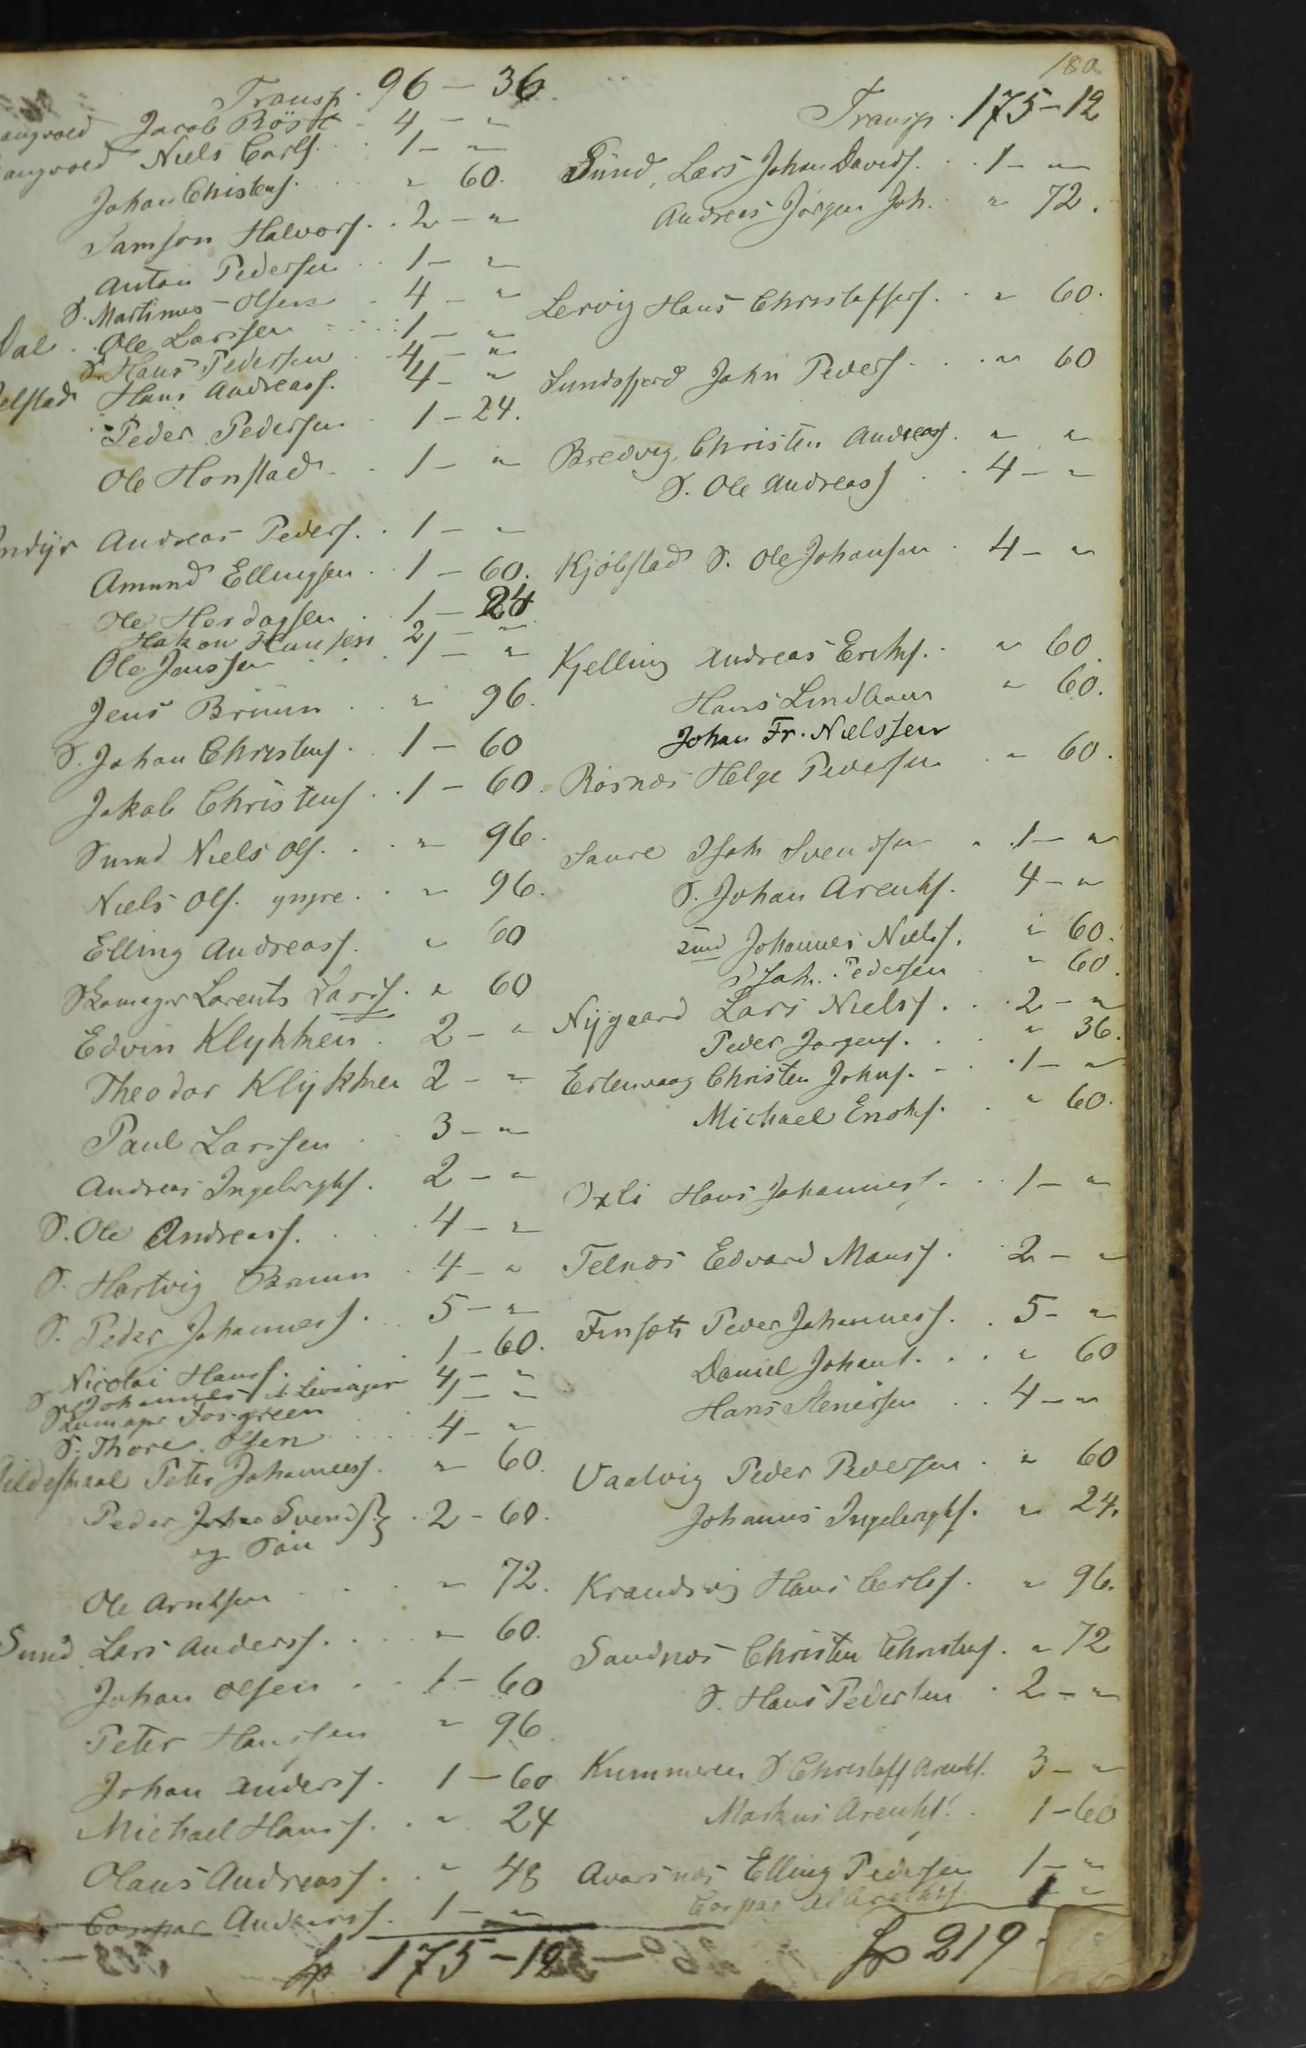 180.
Transp. 96 - 36.
Jacob Röst 4 - "
Niels Carls. 1 - "
Johan Christens. " 60.
Samson Halvors. 2 - "
Anton Pedersen 1 - "
S. Martinus Olsen 4 - "
Dal Ole Larssen 1 - "
S. Hans Pedersen 4 - "
Hans Andreass. 4 - "
Peder Pedersen 1 - 24.
Ole Honstad 1 - "
Andreas Peders. 1 - "
Amund Ellingsen 1 - 60.
Ole Hersdagsen 1 - 24
Hakon Hansen 2 - "
Ole Janssen 1 - "
Jens Brüün " 96.
S. Johan Christens. 1 - 60
Jakob Christens. 1 - 60.
Smed Niels Ols. " 96.
Niels Ols. yngre. " 96.
Elling Andreass. " 60
Skomager Lorents Larss. " 60
Edvin Klykken 2 - "
Theodor Klykken 2 - "
Paul Larssen 3 - "
Andreas Ingebrigts. 2 - "
S. Ole Andreass. 4 - "
S. Hartvig Bruun 4 - "
S. Peder Johanness. 5 - "
Nicolai Hanss. 1 - 60.
S. Johannes 4 - "
Skomager Fosgreen 1 - "
S. Thore Olsen 4 - "
Peter Johanness. " 60.
Peder Svends. 2 - 60.
og
Ole Arntsen " 72.
Sund Lars Anderss. " 60.
Johan Olsen 1 - 60
Peter Hanssen " 96.
Johan Anderss. 1 - 60
Michael Hanss. " 24
Olaus Andreass. " 48
Caspar Anderss. 1 - "
Sp 175 - 12
Transp. 175 - 12
Sund, Lars Johan Davids. 1 - "
Andreas Jörgen Joh. " 72.
Lervig Hans Christoffers. " 60.
Sundsfjord John Peders. " 60
Bredvig, Christen Andreass. " "
S. Ole Andreass 4 - "
Kjölstad S. Ole Johansen 4 - "
Kjelling Andreas Ericks. " 60.
Hans Lindbaur " 60.
Johan Fr. Nielssen
Rosnæs Helge Pedersen " 60.
Saure Isak Svendsen 1 - "
S. Johan Arents. 4 - "
Smd Johannes Niels. " 60.
Joh. Pedersen " 60.
Nygaard Lars Nielss. 2 - "
Peder Jörgens. " 36.
Ertenvaag Christen Johns. 1 - "
Michael Enoks. " 60.
Oxli Hans Johanness. 1 - "
Telnæs Edvard Manss. 2 - "
Finsæts Peder Johanness. 5 - "
Daniel Johans. " 60
Hans Stenersen 4 - "
Vaalvig Peder Pedersen " 60
Johannes Ingebrigts. " 24.
Krandvig Hans Carls. " 96.
Sandnæs Christen Christens. " 72
S. Hans Pedersen 2 - "
Kummeren S. Christoff Arents. 3 - "
Markus Arents. 1 - 60
Avarsnæs Elling Pedersen 1 - "
Caspar 1 "
Sp 219